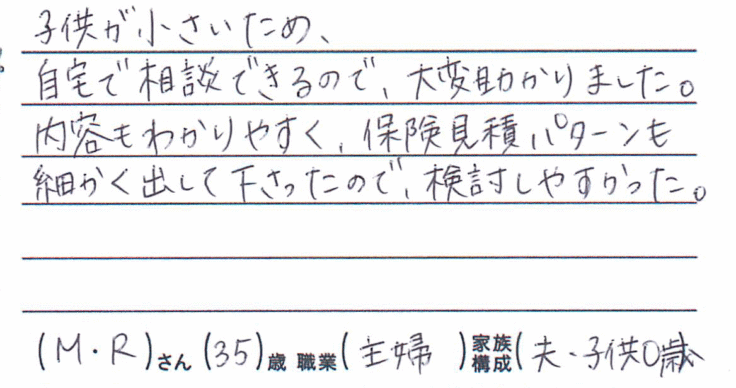 子供が小さいため、
自宅で相談できるので、大変助かりました。
内容もわかりやすく、保険見積パターンも
細かく出して下さったので、検討しやすかった。
(M・R)さん(35)歳 職業(主婦)家族構成(夫・子供0歳)